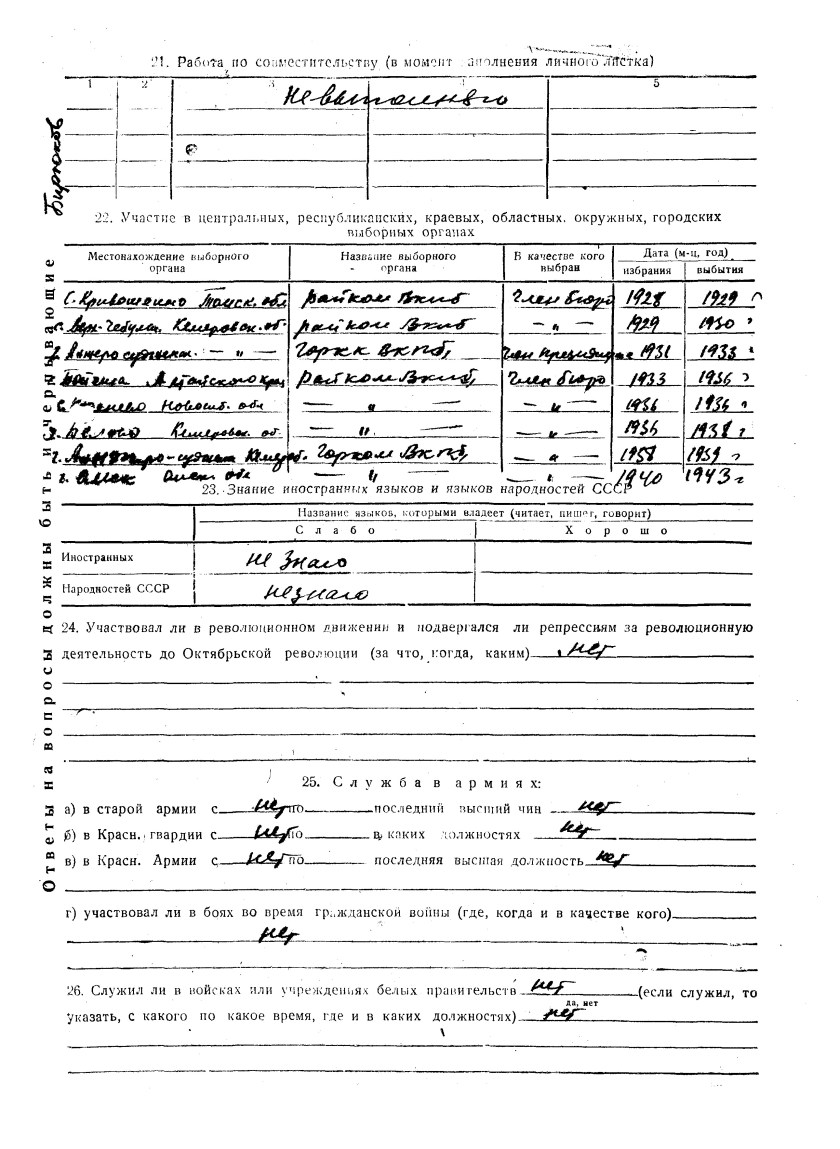 21. Работа по совместительству (в момент заполнения личного листка)
1 2 3 4 5
Не выполняю
Бирюков
22. Участие в центральных, республиканских, краевых, областных, окружных, городских
выборных органах
Местонахождение выборного органа Название выборного органа В качестве кого выбран Дата (м-ц, год)
избрания выбытия
С. Кривошеино Томск. обл райком ВКПб Член бюро 1928 1929 г
Верх-Чебулин. Кемеровск. об. райком ВКПб — „ — 1929 1930 г
г. Анжеро судженск — „ — Горкк ВКПб, Член президиума 1931 1933 г
Алтайского края райком ВКПб, Член бюро 1933 1936 г
Новосиб. обл — „ — — „ — 1936 1936 г
г. Белово Кемеровск. об. — „ — — „ — 1936 1938 г
г. Анжеро-судженск Кемеров. Горком ВКПб, — „ — 1938 1939 г
г. Омск Омск. обл — „ — — „ — 1940 1943 г
23. Знание иностранных языков и языков народностей СССР
Название языков, которыми владеет (читает, пишет, говорит)
Слабо Хорошо
Иностранных не знаю
Народностей СССР не знаю
24. Участвовал ли в революционном движении и подвергался ли репрессиям за революционную
деятельность до Октябрьской революции (за что, когда, каким) нет
25. Служба в армиях:
а) в старой армии с нет по последний высший чин нет
б) в Красн. гвардии с нет по в каких должностях нет
в) в Красн. Армии с нет по последняя высшая должность нет
г) участвовал ли в боях во время гражданской войны (где, когда и в качестве кого)
нет
26. Служил ли в войсках или учреждениях белых правительств нет (если служил, то
да, нет
указать, с какого по какое время, где и в каких должностях) нет
Ответы на вопросы должны быть исчерпывающие